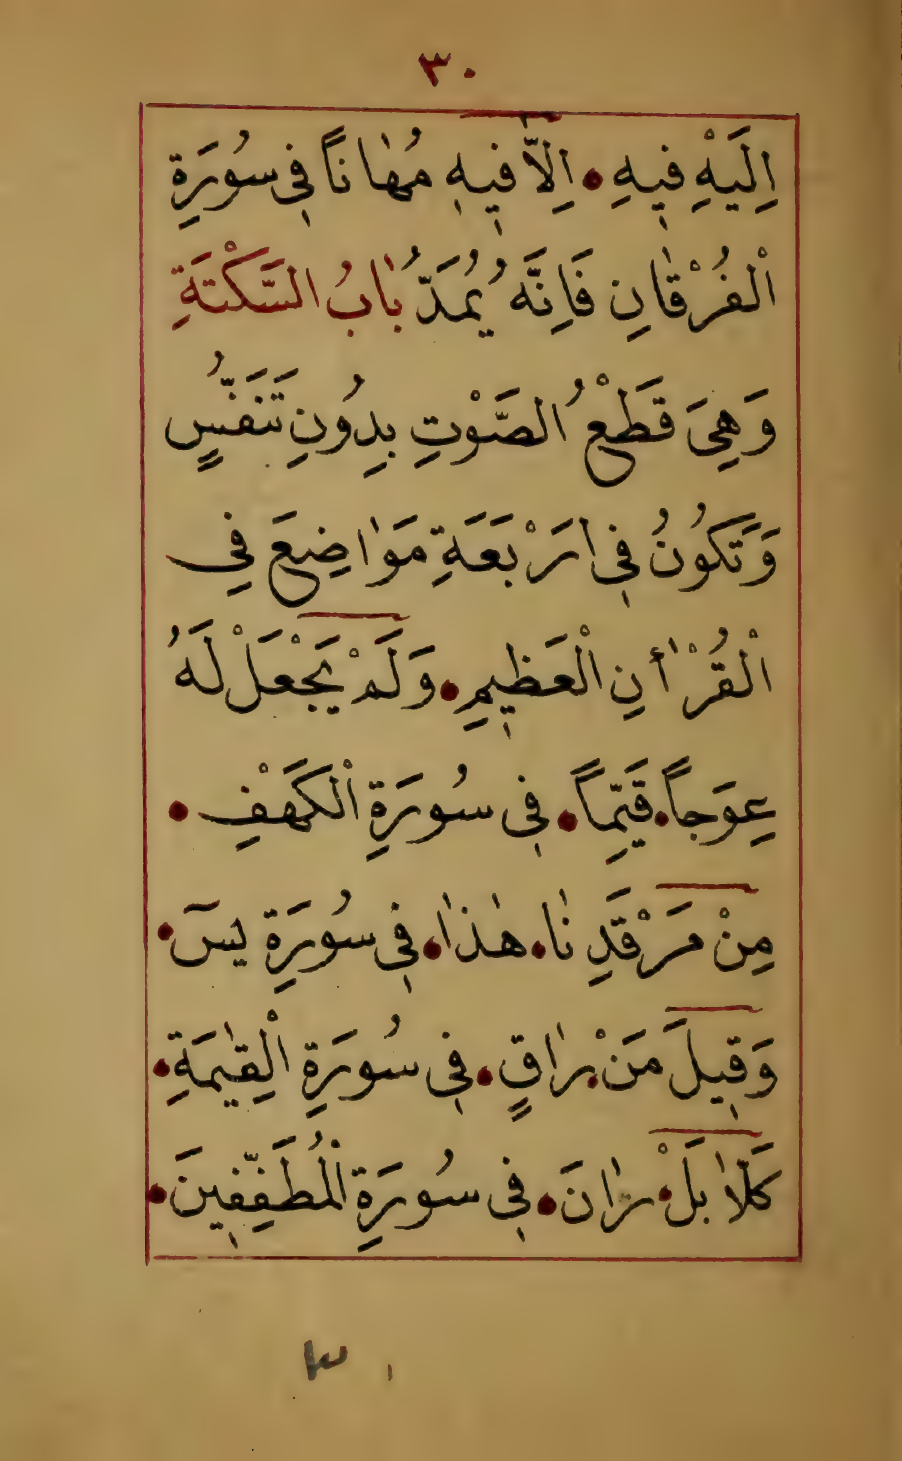 ٣٠
اِلَيْهِ فِيهِ • اِلَّا فِيهِ مُهَانًا فِى سُورَةِ
الْفُرْقَانِ فَاِنَّهُ يُمَدُّ بَابُ السَّكْتَةِ
وَهِىَ قَطْعُ الصَّوْتِ بِدُونِ تَنَفُّسٍ
وَتَكُونُ فِى اَرْبَعَةِ مَوَاضِعَ فِى
الْقُرْاٰنِ الْعَظِيمِ • وَلَمْ يَجْعَلْ لَهُ
عِوَجاً • قَيِّماً • فِى سُورَةِ الْكَهْفِ •
مِنْ مَرْقَدِنَا • هٰذَا • فِى سُورَةِ يسٓ •
وَقِيلَ مَنْ • رَاقٍ • فِى سُورَةِ الْقِيٰمَةِ •
كَلَّا بَلْ • رَانَ • فِى سُورَةِ الْمُطَفِّفِينَ •